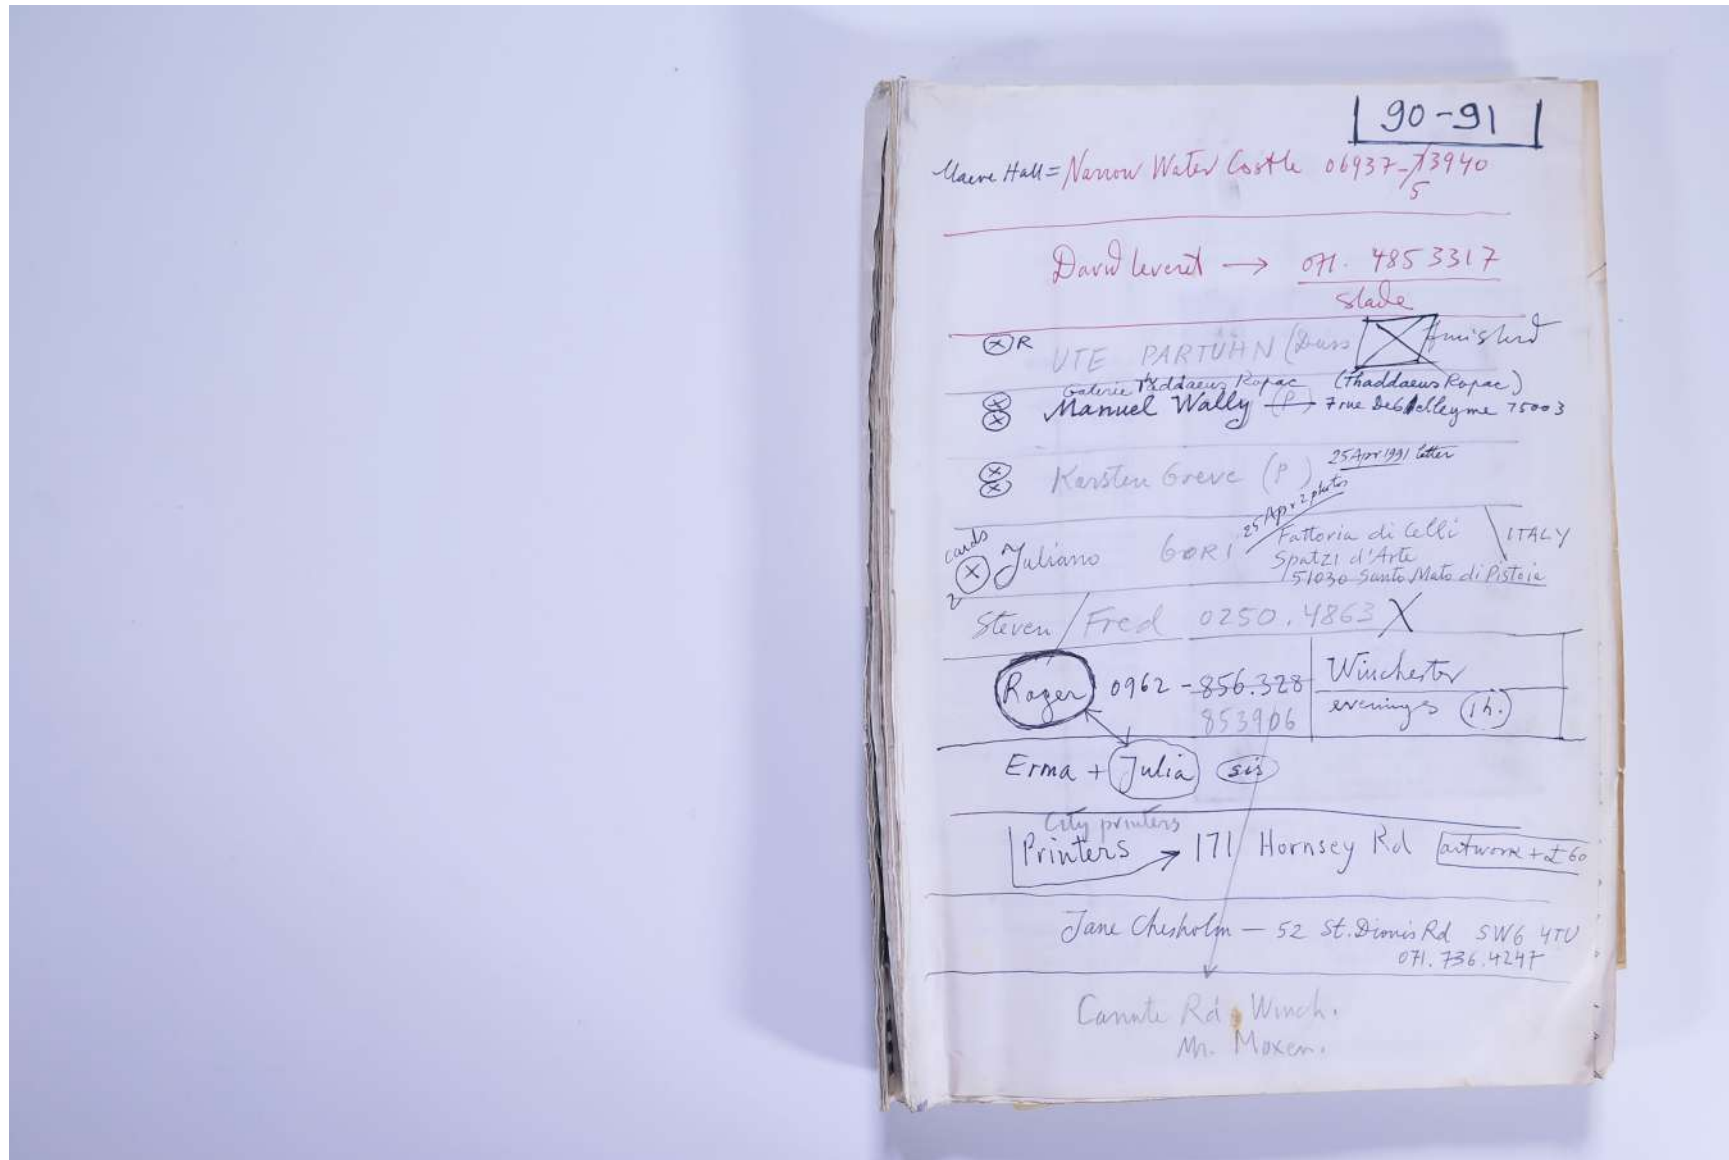 90-91
Maeve Hall = Narrow Water Castle 06937-73940
5
David leveret → 071. 4853317
Slade
R UTE PARTUHN (Duss finished
Galerie Thaddaeus Ropac (Thaddaeus Ropac)
Manuel Wally (P) 7 rue Debelleyme 75003
Karsten Greve (P) 25 Apr 1991 letter
25 Apr 2 photos
cards
2 Juliano GORI Fattoria di Celli ITALY
Spatzi d'Arte
51030 Santo Mato di Pistoia
Steven / Fred 0250.4863 X
Roger 0962 - 856.328 Winchester
853906 evenings 1h.
Erma + Julia sis
City printers
Printers → 171 Hornsey Rd artwork + £60
Jane Chesholm — 52 St. Dionis Rd SW6 4TU
071.736.4247
Canute Rd Winch.
Mr. Moxen.